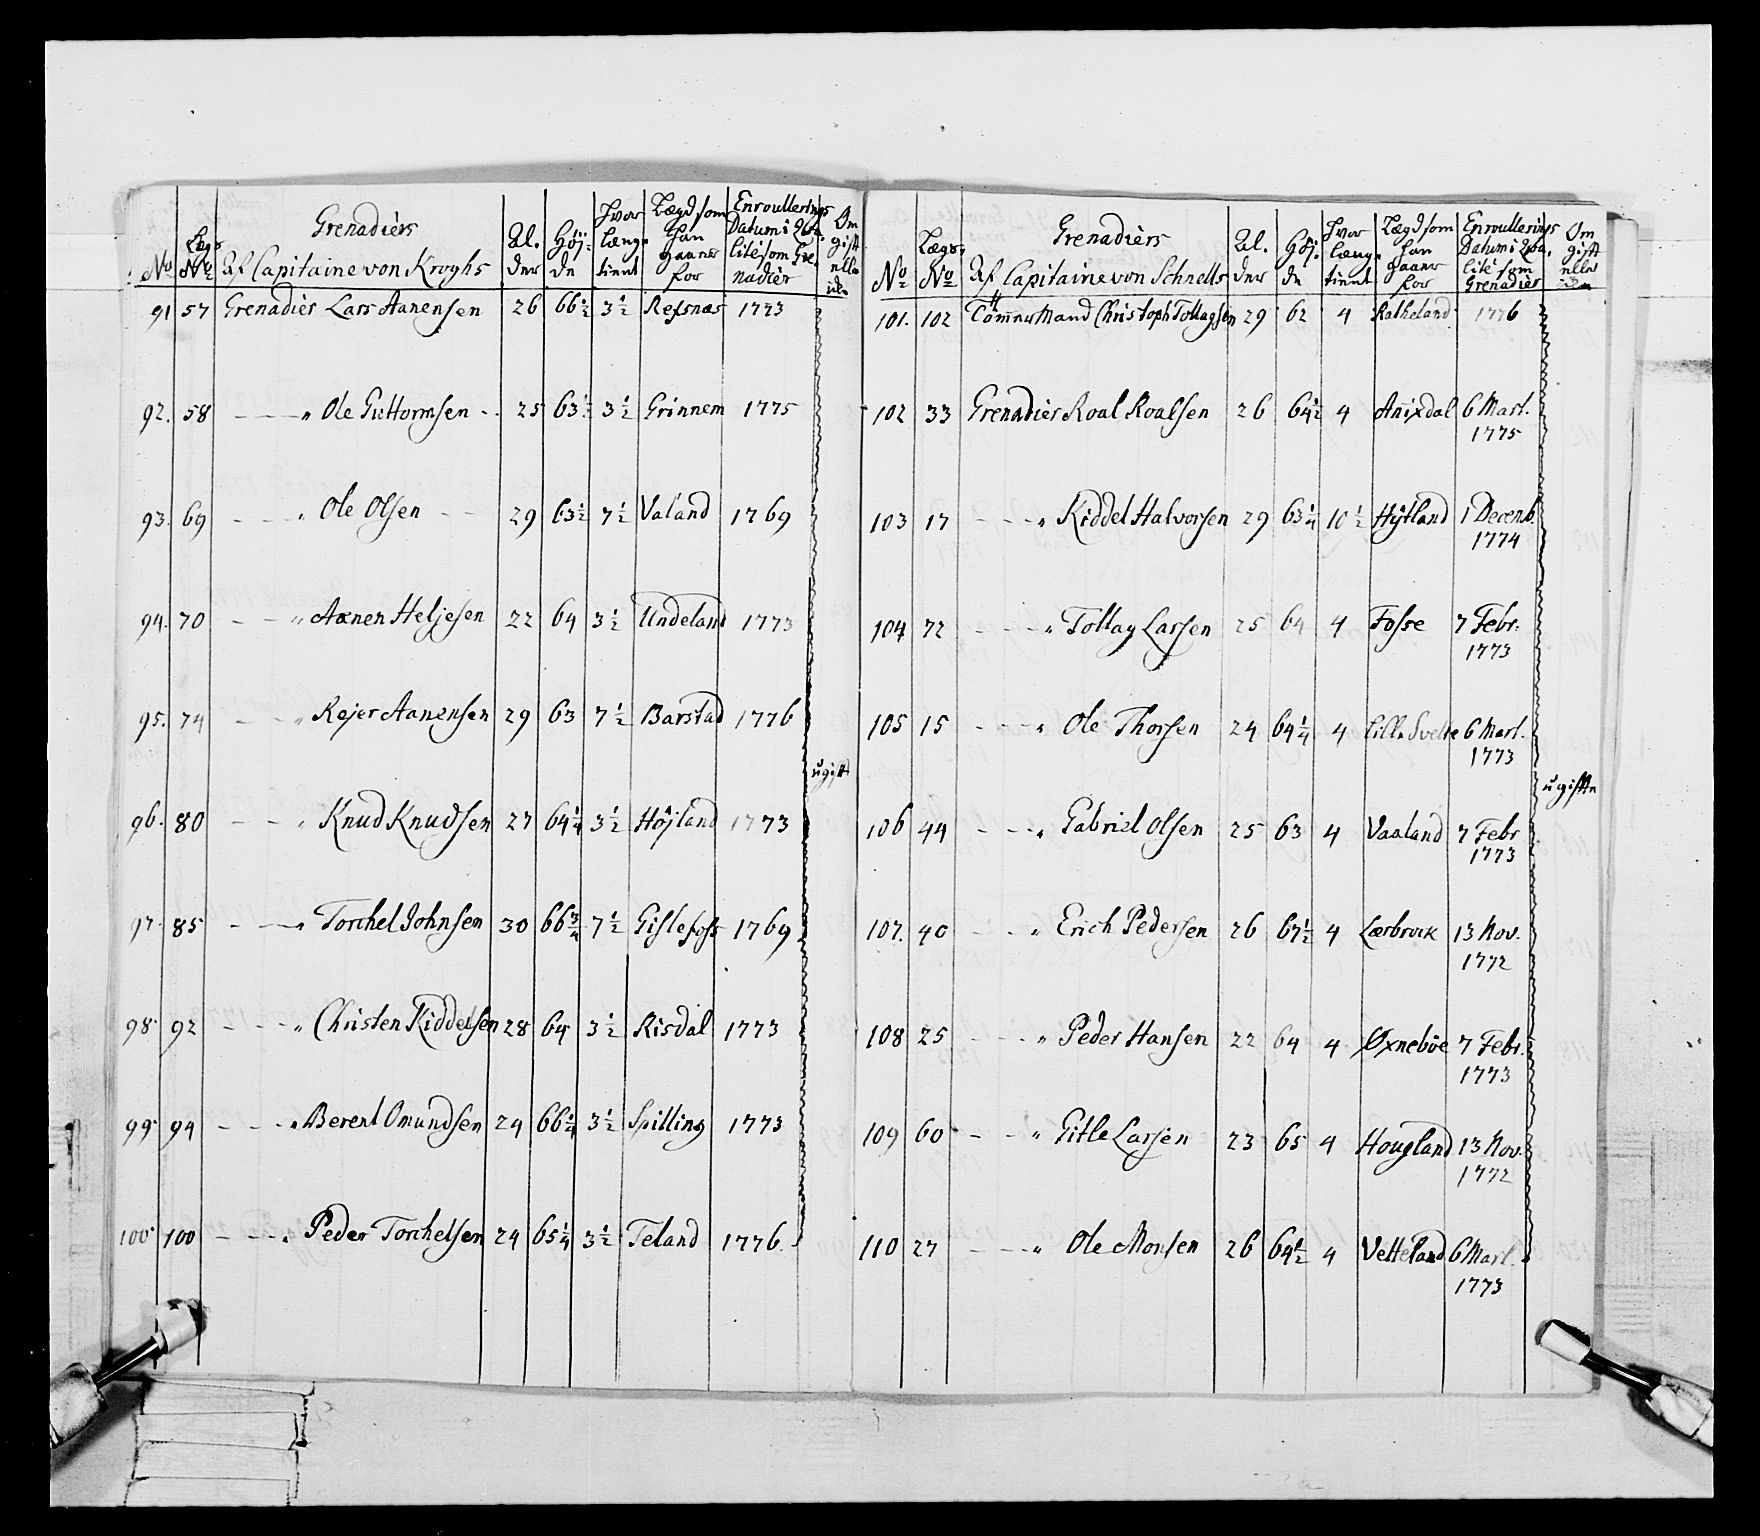 Grenadiers
No | Lægs No | Af Capitaine von Kroghs | Al. der | Höj: de | Hvor længe tient | Lægd som han gaaer for | Enroullerings Datum i Qva. lité som Gre. nadier | Om gift eller ei
91 57 Grenadier Lars Aanensen 26 66½ 3½ Refsnæs 1773
92. 58 — — — " Ole Guttormsen - . 25 63½ 3½ Grinnem 1775
93. 69 — — " Ole Olsen — — 29 63½ 7½ Valand 1769
94. 70 — — " Aanen Heljesen 22 64 3½ Undeland 1773
95. 74 — — " Rejer Aanensen 29 63 7½ Barstad 1776
ugift
96. 80 — — " Knud Knudsen 27 64¼ 3½ Höjland 1773
97. 85 — — " Torchel Johnsen 30 66¾ 7½ Gislefoss 1769
98 92 - - - " Christen Kiddelsen 28 64 3½ Risdal 1773
99 94 - - - " Berent Omundsen 24 66¼ 3½ Spilling 1773
100 100 - - - " Peder Torchelsen 24 65¼ 3½ Teland 1776.
Grenadiers
No | Lægs No | Af Capitaine von Schnells | Al. der | Höj. de | Hvor længe tient | Lægd som han gaaer for | Enroullerings Datum i Qva. lité som Grenadier | Om gift eller ei
101. 102 Tömmermand Christoph Tollagsen 29 62 4 Ratheland 1776
102 33 Grenadier Roal Roalsen 26 64½ 4 Anixdal 6 Mart.
1775
103 17 - - - " Kiddel Halvorsen 29 63¼ 10½ Hÿtland 1 Decemb.
1774
104 72 - - - " Tollag Larsen 25 64 4 Fosse 7 Febr:
1773
105 15 - - - " Ole Thorsen 24 64¼ 4 Lille Svelte 6 Mart.
1773
ugifte
106 44 - - - " Gabriel Olsen 25 63 4 Vaaland 7 Febr
1773
107. 40 - - - " Erich Pedersen 26 67½ 4 Lærbrek 13 Nov.
1772
108 25 - - - " Peder Hansen 22 64 4 Øxneböe 7 Febr.
1773
109 60 - - - " Gitle Larsen 23 65 4 Hougland 13 Nov.
1772
110 27 - - - " Ole Monsen 26 64½ 4 Vetteland 6 Mart.
1773